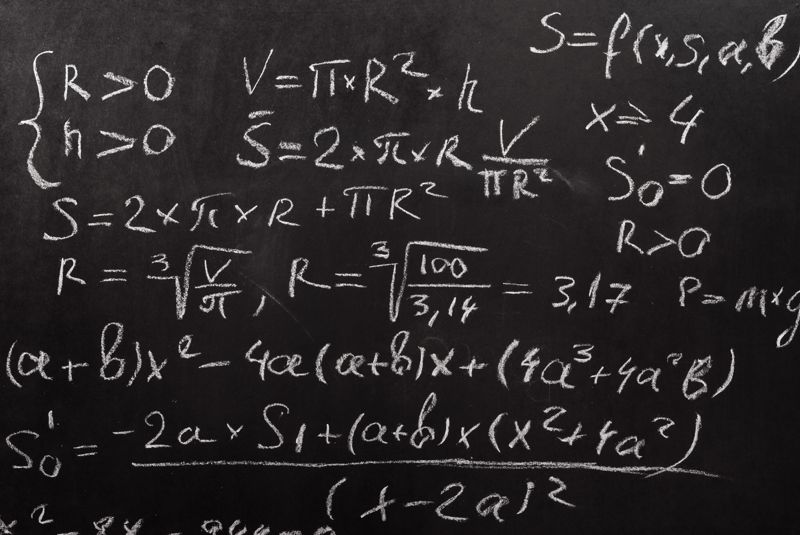 S=f(x,s,a,b)
{ R>0
h>0
V=π×R²×h
x=>4
S̄=2×π×R V/πR²
S'₀=0
S=2×π×R+πR²
R>0
R=³√(V/π), R=³√(100/3,14)=3,17
P=m×g
(a+b)x²-4a(a+b)x+(4a³+4a²b)
S'₀=(-2a×S₁+(a+b)×(x²+4a²))/(x-2a)²